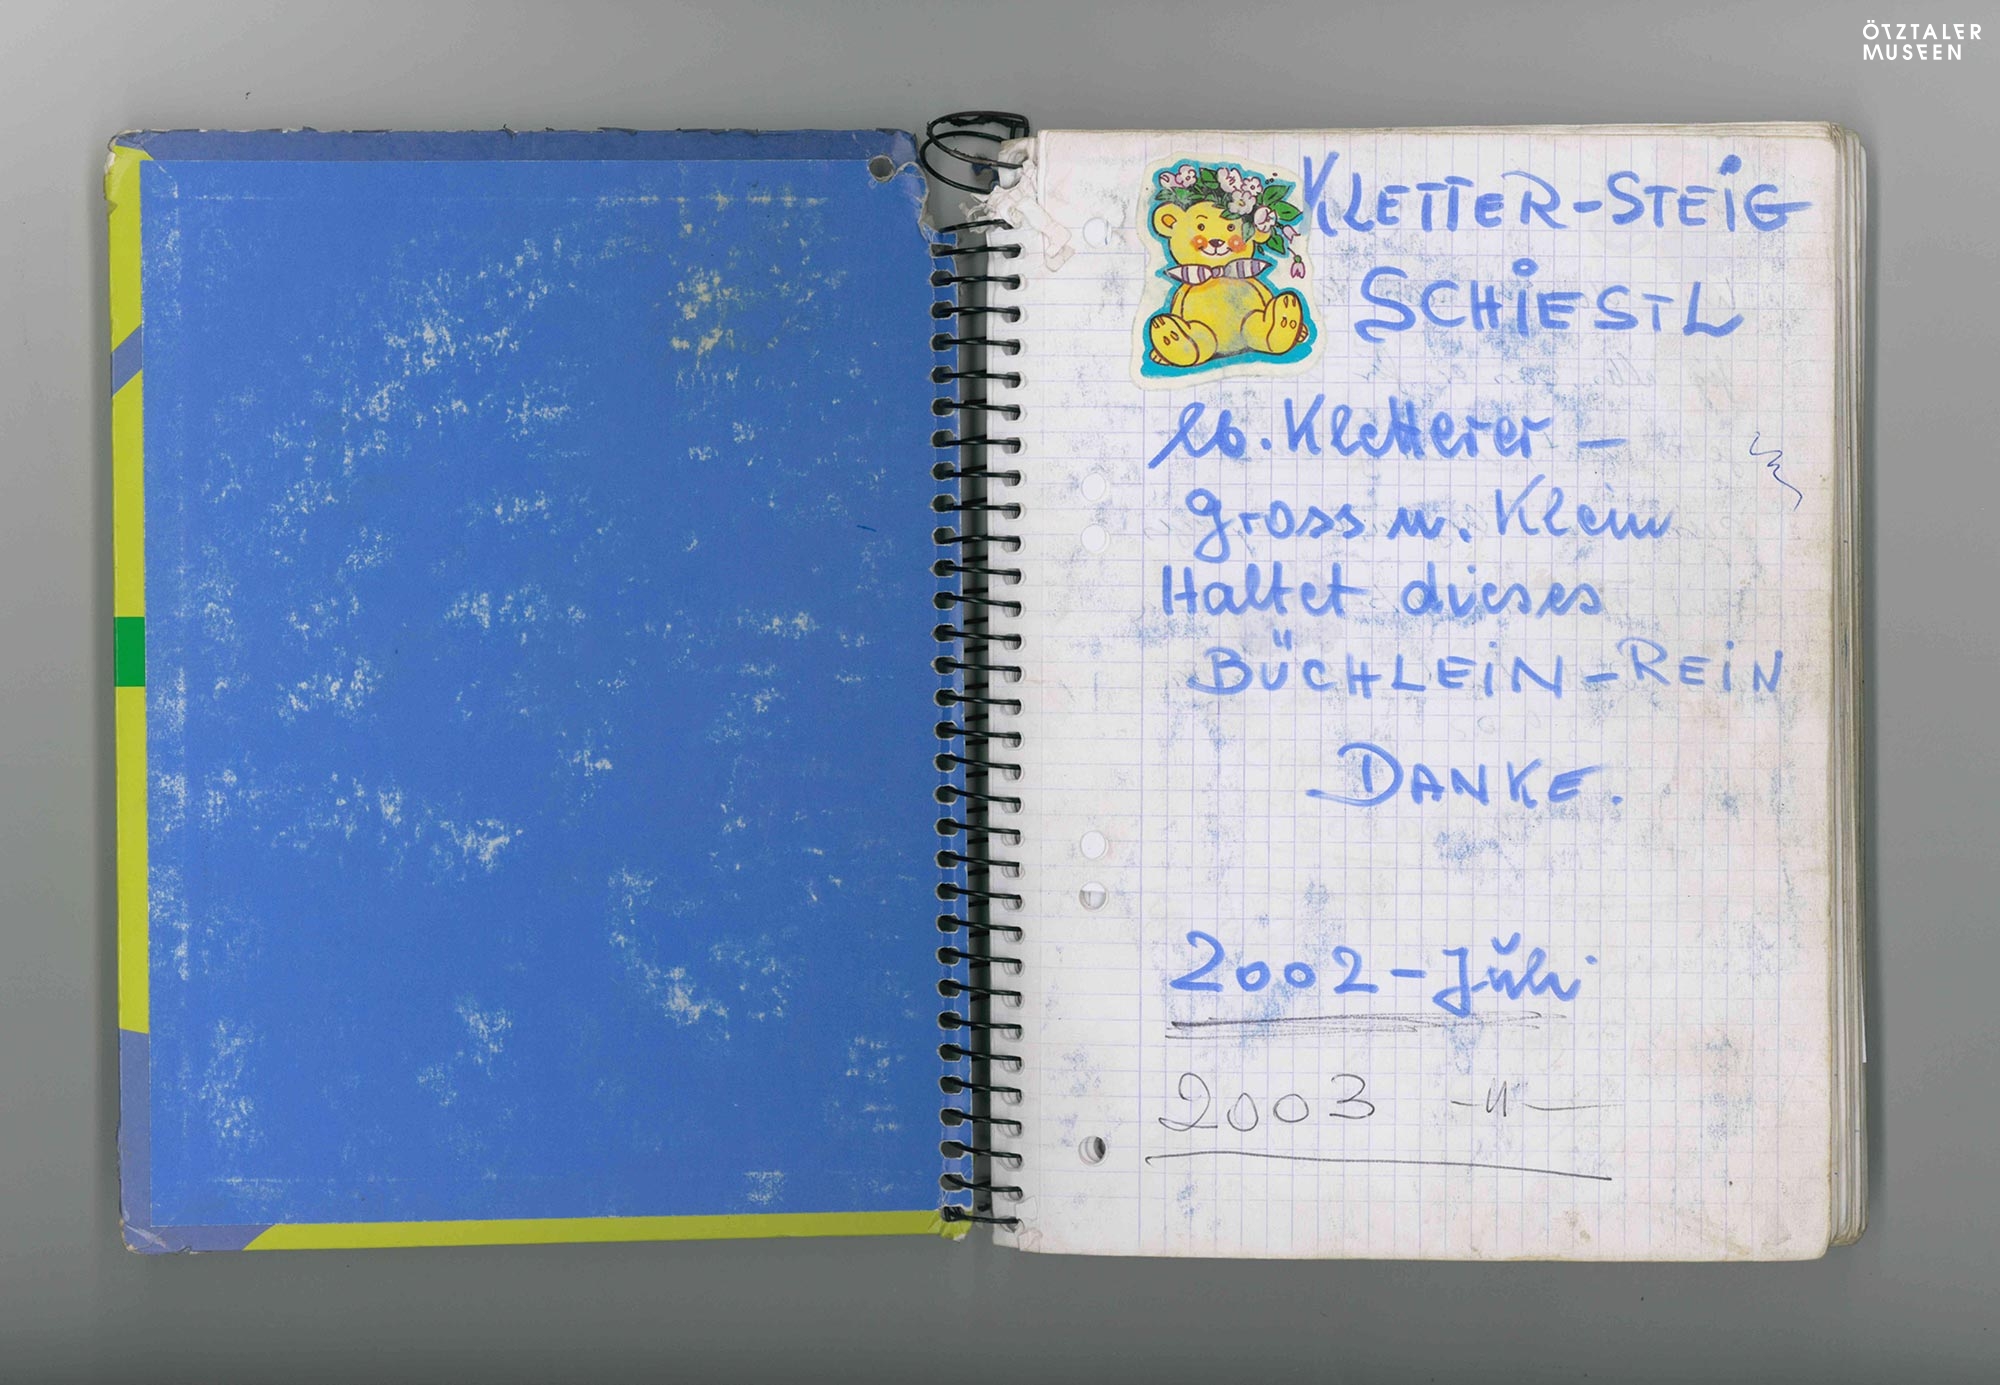 ÖTZTALER
MUSEEN
KLETTER-STEIG
SCHIESTL
lb. Kletterer -
gross u. Klein
Haltet dieses
BÜCHLEIN - REIN
DANKE.
2002 - Juli
2003 -"-